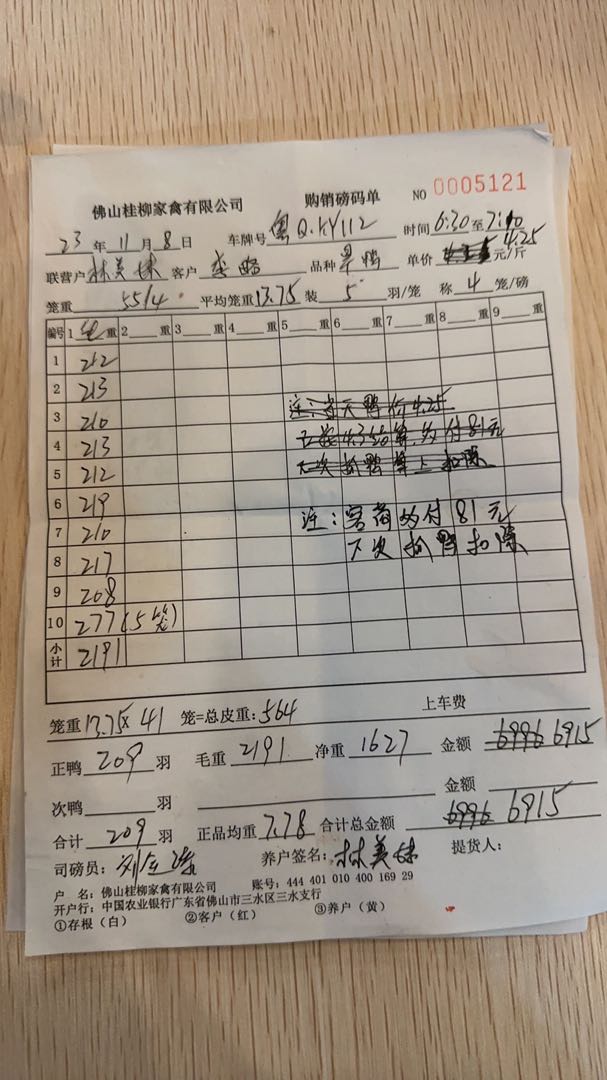 佛山桂柳家禽有限公司 购销磅码单 NO 0005121
23 年 11 月 8 日 车牌号 粤Q·KY112 时间 6:30 至 7:10
联营户 林美妹 客户 李略 品种 旱鸭 单价 4.25 元/斤
笼重 55/4 平均笼重 13.75 装 5 羽/笼 称 4 笼/磅
编号 1 毛 重 2 重 3 重 4 重 5 重 6 重 7 重 8 重 9 重
1 212
2 213
3 210 注:当天鸭价4.25
4 213 4.3结算,多付81元
5 212 下次抓鸭单上扣除
6 219
7 210 注:客商多付81元
8 217 下次抓鸭扣除
9 208
10 277(5笼)
小计 2191
笼重 13.75×41 笼=总皮重:564 上车费
正鸭 209 羽 毛重 2191 净重 1627 金额 6996 6915
次鸭 羽 金额
合计 209 羽 正品均重 7.78 合计总金额 6996 6915
司磅员: 养户签名:林美妹 提货人:
户 名:佛山桂柳家禽有限公司 账号:444 401 010 400 169 29
开户行:中国农业银行广东省佛山市三水区三水支行
①存根(白) ②客户(红) ③养户(黄)